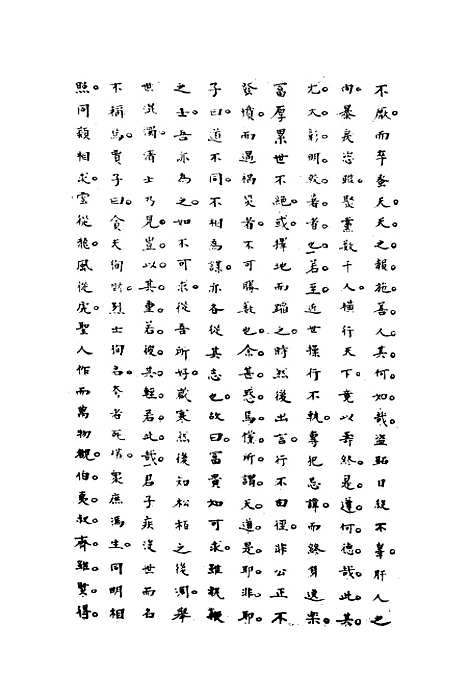 不厭。而卒蚤夭。天之報施善人。其何如哉。盜跖日殺不辜。肝人之
肉。暴戾恣睢。聚黨數千人。橫行天下。竟以壽終。是遵何德哉。此其
尤大彰明較著者也。若至近世。操行不軌。專犯忌諱。而終身逸樂。
富厚累世不絕。或擇地而蹈之。時然後出言。行不由徑。非公正不
發憤。而遇禍災者。不可勝數也。余甚惑焉。儻所謂天道。是耶非耶。
子曰。道不同。不相為謀。亦各從其志也。故曰。富貴如可求。雖執鞭
之士。吾亦為之。如不可求。從吾所好。歲寒然後知松柏之後凋。舉
世混濁。清士乃見。豈以其重若彼。其輕若此哉。君子疾沒世而名
不稱焉。賈子曰。貪夫徇財。烈士徇名。夸者死權。眾庶馮生。同明相
照。同類相求。雲從龍。風從虎。聖人作而萬物覩。伯夷叔齊雖賢。得